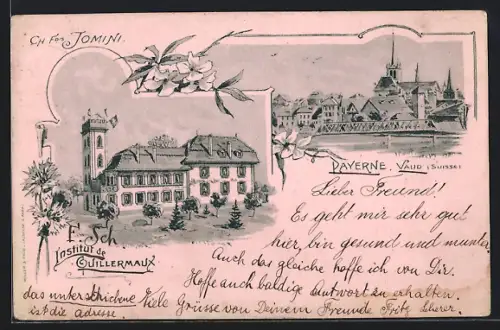 CH FOS JOMINI.
PAYERNE, VAUD (SUISSE)
Institut de
Guillermaux
F. Sch
Lieber Freund!
Es geht mir sehr gut
hier, bin gesund und munter
Auch das gleiche hoffe ich von Dir.
Hoffe auch baldige Antwort zu erhalten.
Viele Grüsse von Deinem Freunde Fritz Scherer.
das unterschriebene
ist die adresse.